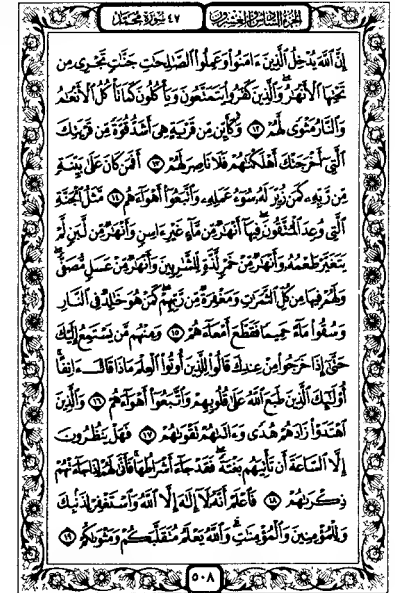 الجزء السادس والعشرون ٤٧ سورة محمد
إِنَّ ٱللَّهَ يُدْخِلُ ٱلَّذِينَ ءَامَنُوا۟ وَعَمِلُوا۟ ٱلصَّٰلِحَٰتِ جَنَّٰتٍ تَجْرِى مِن
تَحْتِهَا ٱلْأَنْهَٰرُ ۖ وَٱلَّذِينَ كَفَرُوا۟ يَتَمَتَّعُونَ وَيَأْكُلُونَ كَمَا تَأْكُلُ ٱلْأَنْعَٰمُ
وَٱلنَّارُ مَثْوًى لَّهُمْ ١٢ وَكَأَيِّن مِّن قَرْيَةٍ هِىَ أَشَدُّ قُوَّةً مِّن قَرْيَتِكَ
ٱلَّتِىٓ أَخْرَجَتْكَ أَهْلَكْنَٰهُمْ فَلَا نَاصِرَ لَهُمْ ١٣ أَفَمَن كَانَ عَلَىٰ بَيِّنَةٍ
مِّن رَّبِّهِۦ كَمَن زُيِّنَ لَهُۥ سُوٓءُ عَمَلِهِۦ وَٱتَّبَعُوٓا۟ أَهْوَآءَهُم ١٤ مَّثَلُ ٱلْجَنَّةِ
ٱلَّتِى وُعِدَ ٱلْمُتَّقُونَ ۖ فِيهَآ أَنْهَٰرٌ مِّن مَّآءٍ غَيْرِ ءَاسِنٍ وَأَنْهَٰرٌ مِّن لَّبَنٍ لَّمْ
يَتَغَيَّرْ طَعْمُهُۥ وَأَنْهَٰرٌ مِّنْ خَمْرٍ لَّذَّةٍ لِّلشَّٰرِبِينَ وَأَنْهَٰرٌ مِّنْ عَسَلٍ مُّصَفًّى ۖ
وَلَهُمْ فِيهَا مِن كُلِّ ٱلثَّمَرَٰتِ وَمَغْفِرَةٌ مِّن رَّبِّهِمْ ۖ كَمَنْ هُوَ خَٰلِدٌ فِى ٱلنَّارِ
وَسُقُوا۟ مَآءً حَمِيمًا فَقَطَّعَ أَمْعَآءَهُمْ ١٥ وَمِنْهُم مَّن يَسْتَمِعُ إِلَيْكَ
حَتَّىٰٓ إِذَا خَرَجُوا۟ مِنْ عِندِكَ قَالُوا۟ لِلَّذِينَ أُوتُوا۟ ٱلْعِلْمَ مَاذَا قَالَ ءَانِفًا ۚ
أُو۟لَٰٓئِكَ ٱلَّذِينَ طَبَعَ ٱللَّهُ عَلَىٰ قُلُوبِهِمْ وَٱتَّبَعُوٓا۟ أَهْوَآءَهُمْ ١٦ وَٱلَّذِينَ
ٱهْتَدَوْا۟ زَادَهُمْ هُدًى وَءَاتَىٰهُمْ تَقْوَىٰهُمْ ١٧ فَهَلْ يَنظُرُونَ
إِلَّا ٱلسَّاعَةَ أَن تَأْتِيَهُم بَغْتَةً ۖ فَقَدْ جَآءَ أَشْرَاطُهَا ۚ فَأَنَّىٰ لَهُمْ إِذَا جَآءَتْهُمْ
ذِكْرَىٰهُمْ ١٨ فَٱعْلَمْ أَنَّهُۥ لَآ إِلَٰهَ إِلَّا ٱللَّهُ وَٱسْتَغْفِرْ لِذَنۢبِكَ
وَلِلْمُؤْمِنِينَ وَٱلْمُؤْمِنَٰتِ ۗ وَٱللَّهُ يَعْلَمُ مُتَقَلَّبَكُمْ وَمَثْوَىٰكُمْ ١٩
٥٠٨